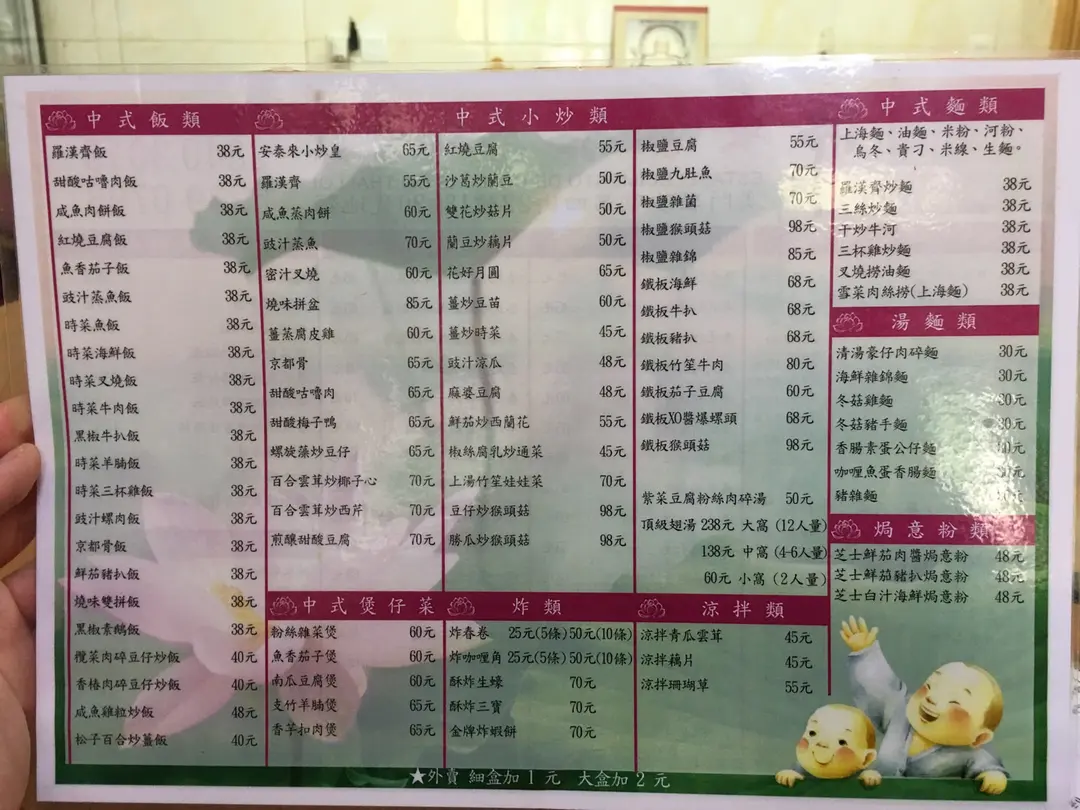 中式飯類
羅漢齋飯 38元
甜酸咕嚕肉飯 38元
咸魚肉餅飯 38元
紅燒豆腐飯 38元
魚香茄子飯 38元
豉汁蒸魚飯 38元
時菜魚飯 38元
時菜海鮮飯 38元
時菜叉燒飯 38元
時菜牛肉飯 38元
黑椒牛扒飯 38元
時菜羊腩飯 38元
時菜三杯雞飯 38元
豉汁螺肉飯 38元
京都骨飯 38元
鮮茄豬扒飯 38元
燒味雙拼飯 38元
黑椒素鵝飯 38元
欖菜肉碎豆仔炒飯 40元
香椿肉碎豆仔炒飯 40元
咸魚雞粒炒飯 48元
松子百合炒薑飯 40元
中式小炒類
安泰來小炒皇 65元
羅漢齋 55元
咸魚蒸肉餅 60元
豉汁蒸魚 70元
密汁叉燒 60元
燒味拼盆 85元
薑蒸腐皮雞 60元
京都骨 65元
甜酸咕嚕肉 65元
甜酸梅子鴨 65元
螺旋藻炒豆仔 65元
百合雲茸炒椰子心 70元
百合雲茸炒西芹 70元
煎釀甜酸豆腐 70元
紅燒豆腐 55元
沙葛炒蘭豆 50元
雙花炒菇片 50元
蘭豆炒藕片 50元
花好月圓 65元
薑炒豆苗 60元
薑炒時菜 45元
豉汁涼瓜 48元
麻婆豆腐 48元
鮮茄炒西蘭花 55元
椒絲腐乳炒通菜 45元
上湯竹笙娃娃菜 70元
豆仔炒猴頭菇 98元
勝瓜炒猴頭菇 98元
椒鹽豆腐 55元
椒鹽九肚魚 70元
椒鹽雜菌 70元
椒鹽猴頭菇 98元
椒鹽雜錦 85元
鐵板海鮮 68元
鐵板牛扒 68元
鐵板豬扒 68元
鐵板竹笙牛肉 80元
鐵板茄子豆腐 60元
鐵板XO醬爆螺頭 68元
鐵板猴頭菇 98元
紫菜豆腐粉絲肉碎湯 50元
頂級翅湯 238元 大窩 (12人量)
138元 中窩 (4-6人量)
60元 小窩 (2人量)
中式煲仔菜
粉絲雜菜煲 60元
魚香茄子煲 60元
南瓜豆腐煲 60元
支竹羊腩煲 65元
香芋扣肉煲 65元
炸類
炸春卷 25元(5條) 50元(10條)
炸咖喱角 25元(5條) 50元(10條)
酥炸生蠔 70元
酥炸三寶 70元
金牌炸蝦餅 70元
涼拌類
涼拌青瓜雲茸 45元
涼拌藕片 45元
涼拌珊瑚草 55元
中式麵類
上海麵、油麵、米粉、河粉、
烏冬、貴刁、米線、生麵。
羅漢齋炒麵 38元
三絲炒麵 38元
干炒牛河 38元
三杯雞炒麵 38元
叉燒撈油麵 38元
雪菜肉絲撈(上海麵) 38元
湯麵類
清湯豪仔肉碎麵 30元
海鮮雜錦麵 30元
冬菇雞麵 30元
冬菇豬手麵 30元
香腸素蛋公仔麵
咖喱魚蛋香腸麵
豬雜麵
焗意粉類
芝士鮮茄肉醬焗意粉 48元
芝士鮮茄豬扒焗意粉 48元
芝士白汁海鮮焗意粉 48元
★外賣 細盒加1元 大盒加2元